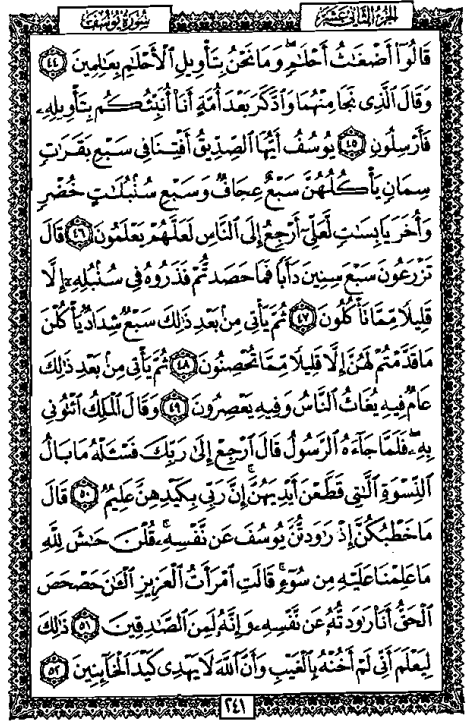 سُورَةُ يُوسُف الجُزءُ الثَّانِي عَشَر
قَالُوٓا۟ أَضْغَٰثُ أَحْلَٰمٍ ۖ وَمَا نَحْنُ بِتَأْوِيلِ ٱلْأَحْلَٰمِ بِعَٰلِمِينَ ٤٤
وَقَالَ ٱلَّذِى نَجَا مِنْهُمَا وَٱدَّكَرَ بَعْدَ أُمَّةٍ أَنَا۠ أُنَبِّئُكُم بِتَأْوِيلِهِۦ
فَأَرْسِلُونِ ٤٥ يُوسُفُ أَيُّهَا ٱلصِّدِّيقُ أَفْتِنَا فِى سَبْعِ بَقَرَٰتٍ
سِمَانٍ يَأْكُلُهُنَّ سَبْعٌ عِجَافٌ وَسَبْعِ سُنۢبُلَٰتٍ خُضْرٍ
وَأُخَرَ يَابِسَٰتٍ لَّعَلِّىٓ أَرْجِعُ إِلَى ٱلنَّاسِ لَعَلَّهُمْ يَعْلَمُونَ ٤٦ قَالَ
تَزْرَعُونَ سَبْعَ سِنِينَ دَأَبًا فَمَا حَصَدتُّمْ فَذَرُوهُ فِى سُنۢبُلِهِۦٓ إِلَّا
قَلِيلًا مِّمَّا تَأْكُلُونَ ٤٧ ثُمَّ يَأْتِى مِنۢ بَعْدِ ذَٰلِكَ سَبْعٌ شِدَادٌ يَأْكُلْنَ
مَا قَدَّمْتُمْ لَهُنَّ إِلَّا قَلِيلًا مِّمَّا تُحْصِنُونَ ٤٨ ثُمَّ يَأْتِى مِنۢ بَعْدِ ذَٰلِكَ
عَامٌ فِيهِ يُغَاثُ ٱلنَّاسُ وَفِيهِ يَعْصِرُونَ ٤٩ وَقَالَ ٱلْمَلِكُ ٱئْتُونِى
بِهِۦ ۖ فَلَمَّا جَآءَهُ ٱلرَّسُولُ قَالَ ٱرْجِعْ إِلَىٰ رَبِّكَ فَسْـَٔلْهُ مَا بَالُ
ٱلنِّسْوَةِ ٱلَّٰتِى قَطَّعْنَ أَيْدِيَهُنَّ ۚ إِنَّ رَبِّى بِكَيْدِهِنَّ عَلِيمٌ ٥٠ قَالَ
مَا خَطْبُكُنَّ إِذْ رَٰوَدتُّنَّ يُوسُفَ عَن نَّفْسِهِۦ ۚ قُلْنَ حَٰشَ لِلَّهِ
مَا عَلِمْنَا عَلَيْهِ مِن سُوٓءٍ ۚ قَالَتِ ٱمْرَأَتُ ٱلْعَزِيزِ ٱلْـَٰٔنَ حَصْحَصَ
ٱلْحَقُّ أَنَا۠ رَٰوَدتُّهُۥ عَن نَّفْسِهِۦ وَإِنَّهُۥ لَمِنَ ٱلصَّٰدِقِينَ ٥١ ذَٰلِكَ
لِيَعْلَمَ أَنِّى لَمْ أَخُنْهُ بِٱلْغَيْبِ وَأَنَّ ٱللَّهَ لَا يَهْدِى كَيْدَ ٱلْخَآئِنِينَ ٥٢
٢٤١